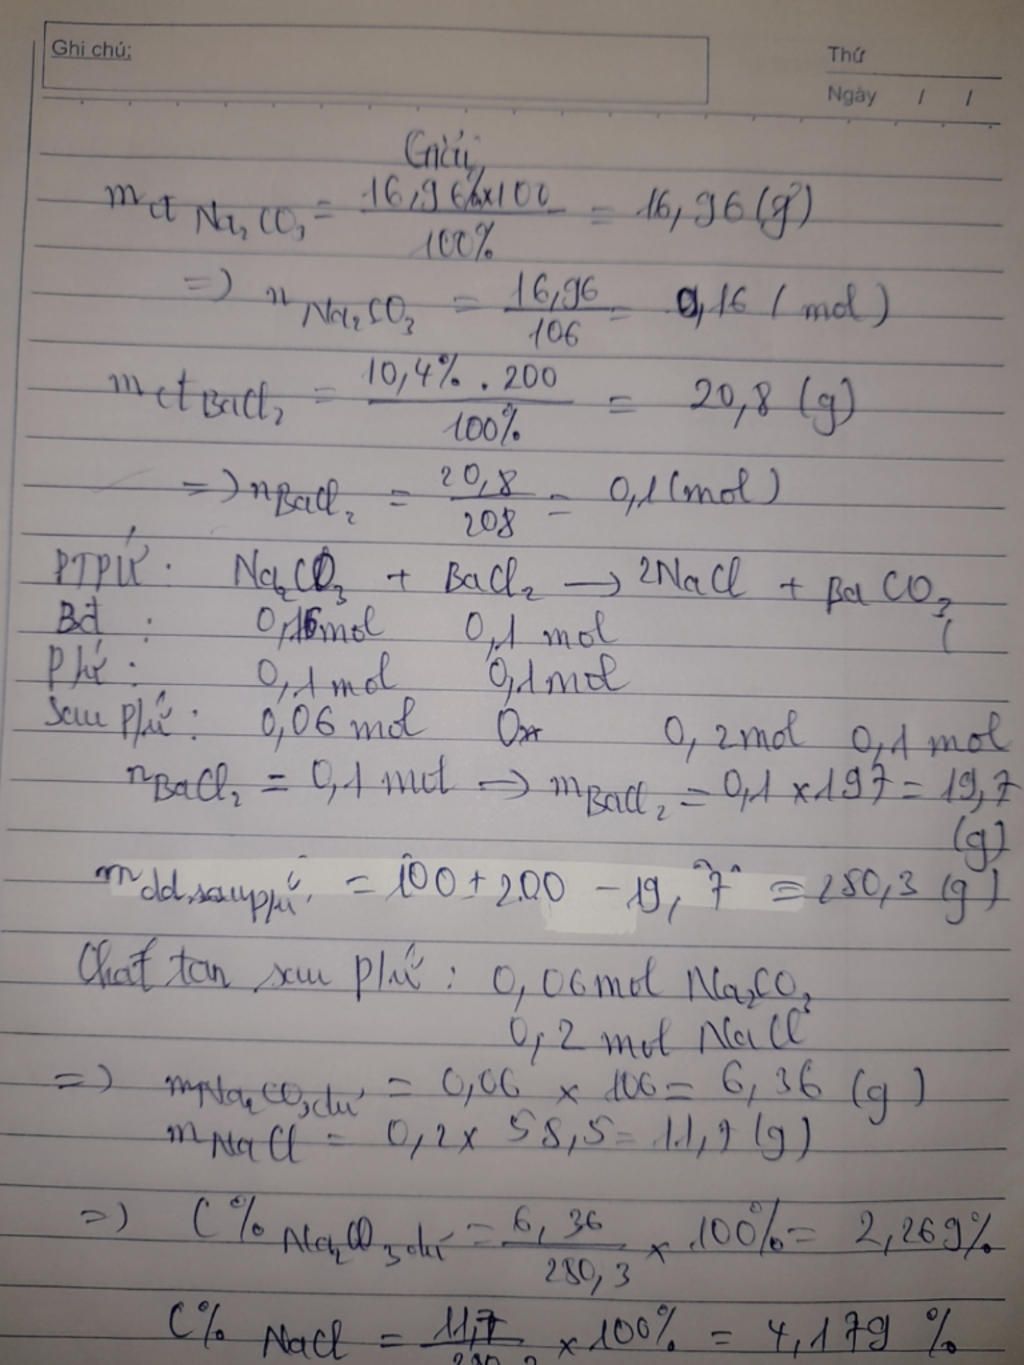 Ghi chú:
Thứ
Ngày / /
Giải
m ct Na₂CO₃ = 16,96% x 100 / 100% = 16,96 (g)
=> n Na₂CO₃ = 16,96 / 106 = 0,16 (mol)
m ct BaCl₂ = 10,4% . 200 / 100% = 20,8 (g)
=> n BaCl₂ = 20,8 / 208 = 0,1 (mol)
PTPỨ: Na₂CO₃ + BaCl₂ → 2NaCl + BaCO₃
Bđ : 0,16mol 0,1 mol (
Pứ : 0,1 mol 0,1 mol
Sau pứ : 0,06 mol 0 0,2 mol 0,1 mol
n BaCl₂ = 0,1 mol → m BaCl₂ = 0,1 x 197 = 19,7
(g)
m dd sau pứ = 100 + 200 - 19,7 = 280,3 (g)
Chất tan sau pứ : 0,06 mol Na₂CO₃
0,2 mol NaCl
=> m Na₂CO₃ dư = 0,06 x 106 = 6,36 (g)
m NaCl = 0,2 x 58,5 = 11,7 (g)
=> C% Na₂CO₃ dư = 6,36 / 280,3 x 100% = 2,269%
C% NaCl = 11,7 / 280,3 x 100% = 4,179 %